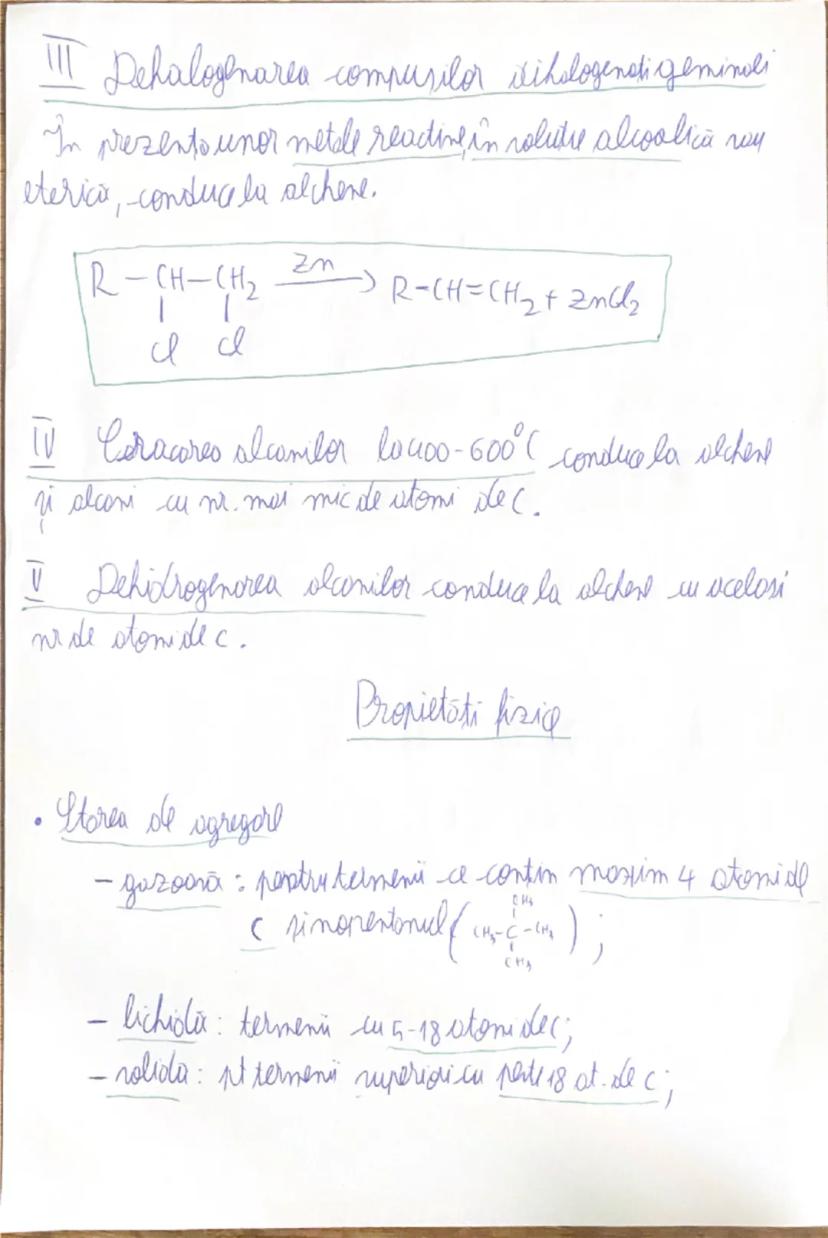 III Dehalogenarea compusilor dihalogenati geminali
În prezenta unor metale reactive, în solutie alcoolică sau
eterică, conduce la alchene.
R - CH - CH2 Zn → R-CH=CH2 + ZnCl2
| |
Cl Cl
IV Cracarea alcanilor la 400-600°C conduce la alchene
și alcani cu nr. mai mic de atomi de C.
V Dehidrogenarea alcanilor conduce la alchene cu acelasi
nr de atomi de C.
Proprietăti fizice
• Starea de agregare
- gazoasă : pentru termenii ce contin maxim 4 atomi de
C si neopentanul ( CH3-C-CH3 ) ;
CH3
CH3
- lichidă : termenii cu 5-18 atomi de C;
- solidă : pt termenii superiori cu peste 18 at. de C;